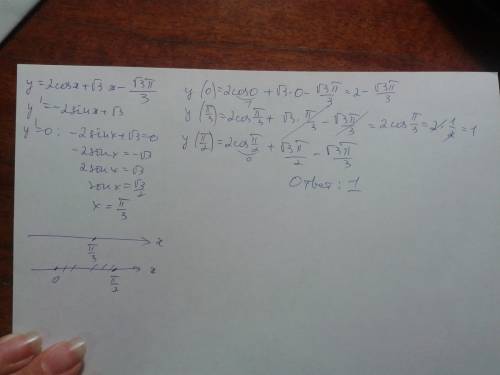 y = 2cosx + √3 x - √3π/3
y' = -2sinx + √3
y' = 0 : -2sinx + √3 = 0
-2sinx = -√3
2sinx = √3
sinx = √3/2
x = π/3
π/3 x
0 π/2 x
y(0) = 2cos0 + √3·0 - √3π/3 = 2 - √3π/3
1
y(π/3) = 2cos π/3 + √3·π/3 - √3π/3 = 2cos π/3 = 2·1/2 = 1
y(π/2) = 2cos π/2 + √3π/2 - √3π/3
0
Ответ: 1